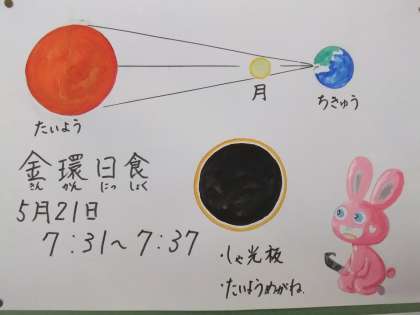 月
ちきゅう
たいよう
金環日食
きん かん にっ しょく
5月21日
7:31〜7:37
・しゃ光板
・たいようめがね